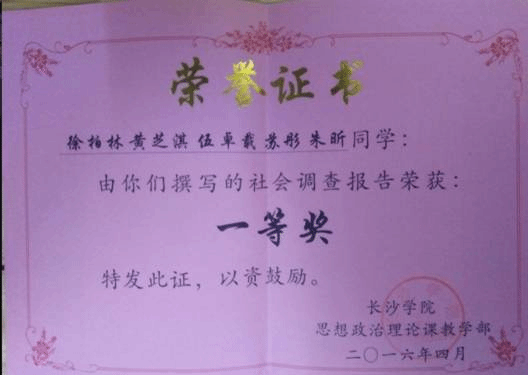 荣誉证书
徐柏林黄芝淇伍卓载苏彤朱昕同学：
由你们撰写的社会调查报告荣获：
一等奖
特发此证，以资鼓励。
长沙学院
思想政治理论课教学部
二〇一六年四月